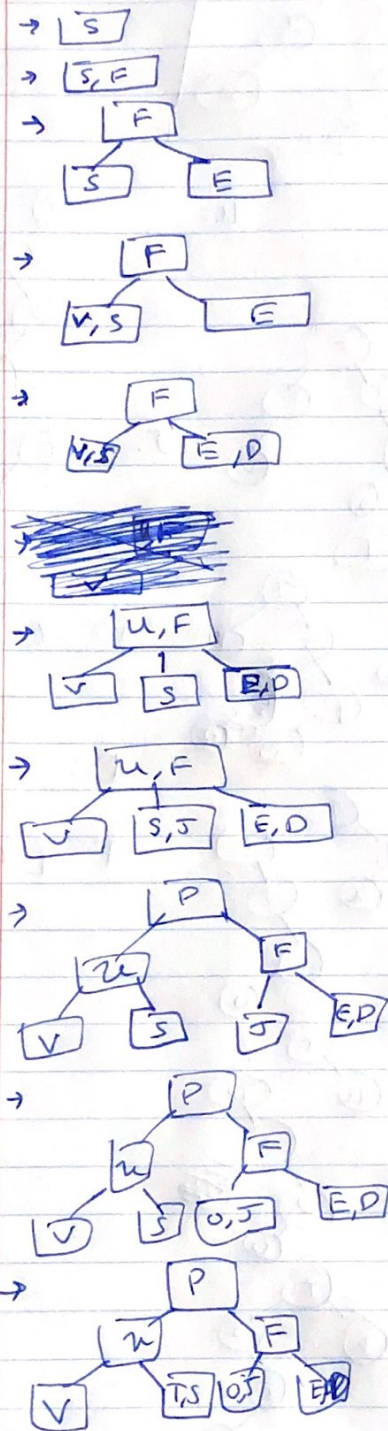 → S
→ S, F
→ F
S E
→ F
V, S E
→ F
V, S E, D
→ u, F
V S E, D
→ u, F
V S, J E, D
→ P
u F
V S J E, D
→ P
u F
V S O, J E, D
→ P
u F
V T, S O, J E, D